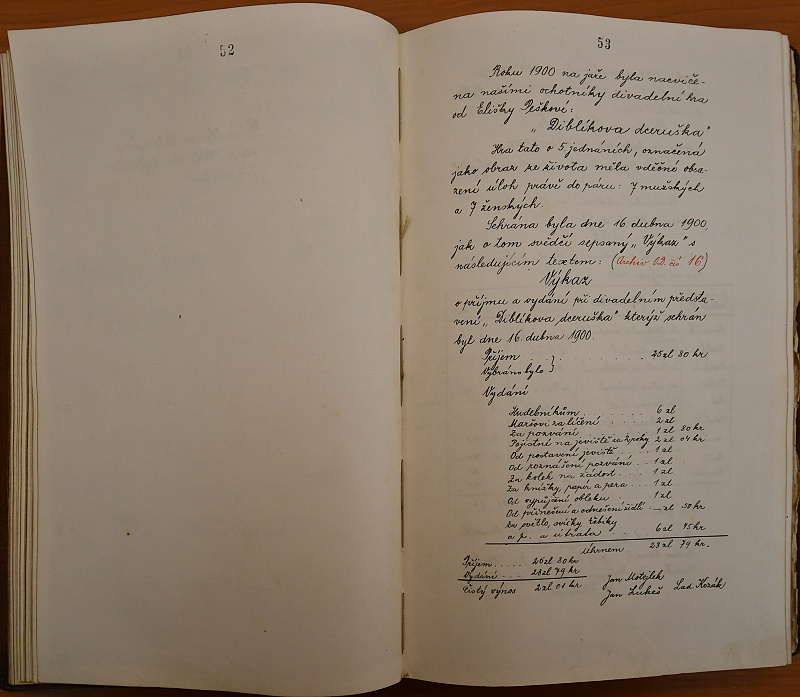 52
53
Roku 1900 na jaře byla nacviče-
na našimi ochotníky divadelní hra
od Elišky Peškové:
„Diblíkova dceruška"
Hra tato o 5 jednáních, označená
jako obraz ze života měla vděčné obsa-
zení úloh právě do páru: 7 mužských
a 7 ženských.
Sehrána byla dne 16. dubna 1900,
jak o tom svědčí sepsaný „Výkaz" s
následujícím textem: (Archiv O.D. čís. 16)
Výkaz
o příjmu a vydání při divadelním předsta-
vení „Diblíkova dceruška" kterýž sehrán
byl dne 16. dubna 1900.
Příjem
Vybráno bylo } 25 zl 80 kr
Vydání
Hudebníkům 6 zl
Maršovi za líčení 2 zl
Za pozvání 1 zl 80 kr
Pojistní na jeviště za 2 roky 2 zl 04 kr
Od postavení jeviště 1 zl
Od roznášení pozvání 1 zl
Za kolek na žádost 1 zl
Za knížky, papír a pera 1 zl
Od vypůjčení obleku 1 zl
Od přinešení a odnešení židlí — zl 50 kr
Za světlo, svíčky, hřebíky
a p. a útrata 6 zl 45 kr
Úhrnem 23 zl 79 kr.
Příjem 25 zl 80 kr
Vydání 23 zl 79 kr
Čistý výnos 2 zl 01 kr
Jan Motejlek
Jan Lukeš Lad. Kozák